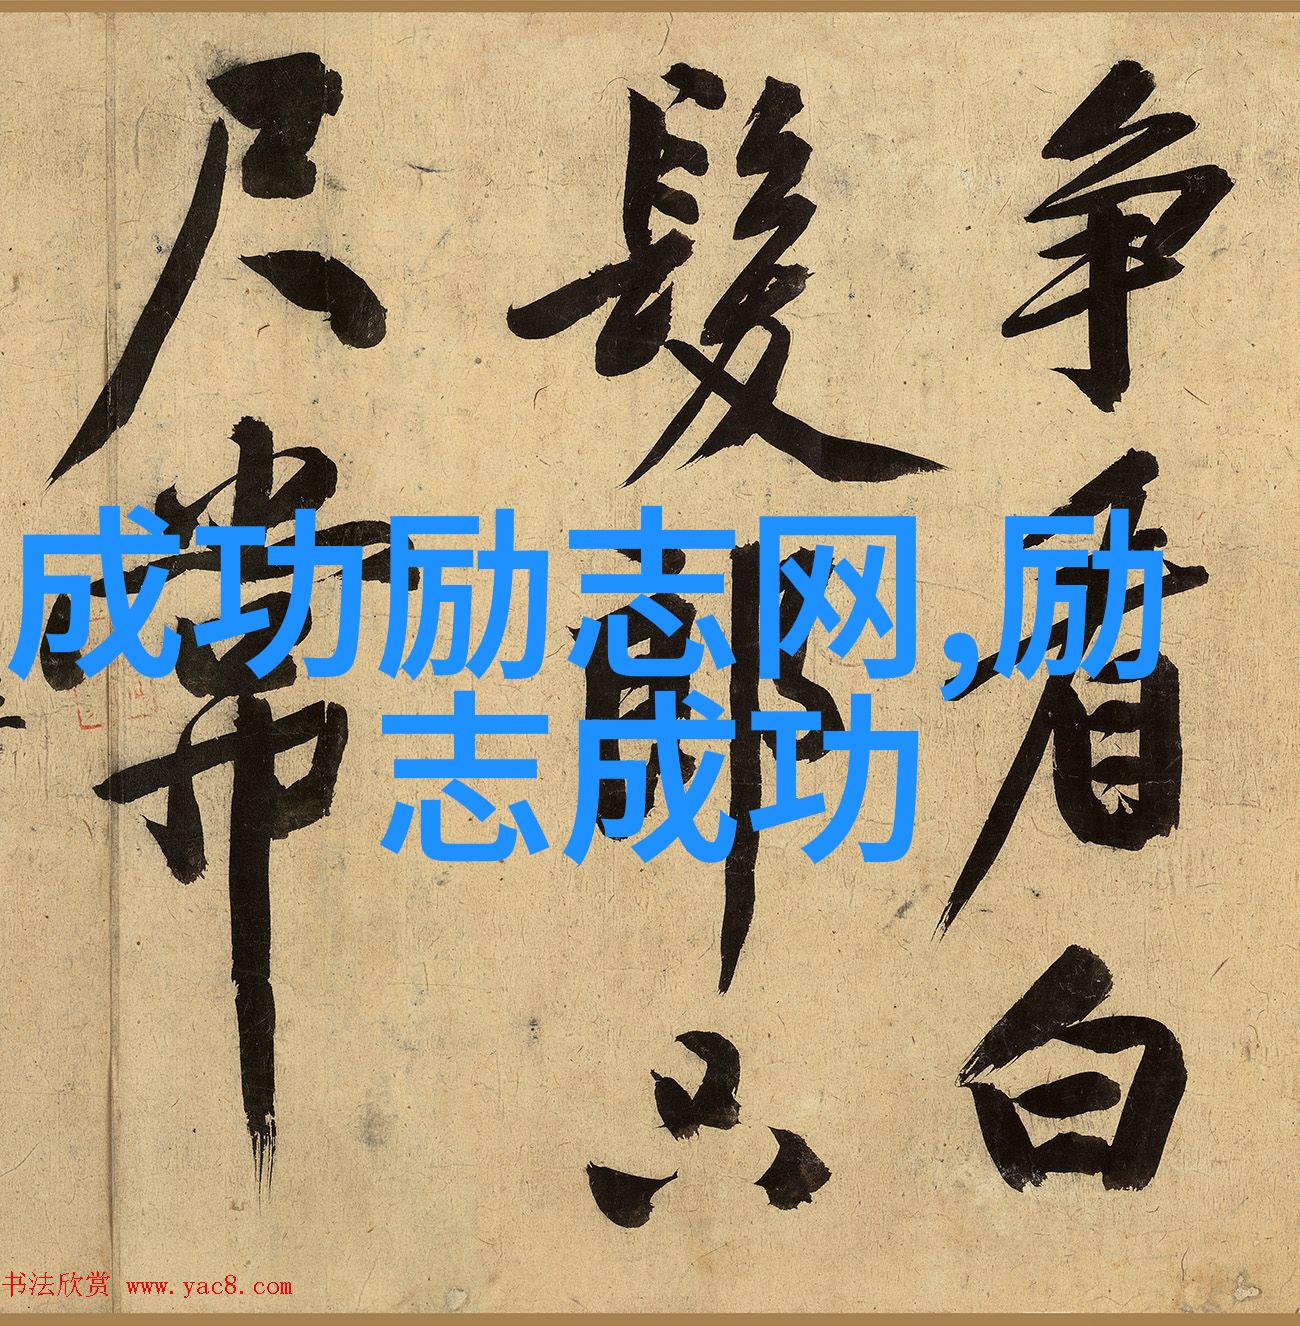 争看白
髮郎只
尺常
成功励志网,励
志成功
书法欣赏 www.yac8.com